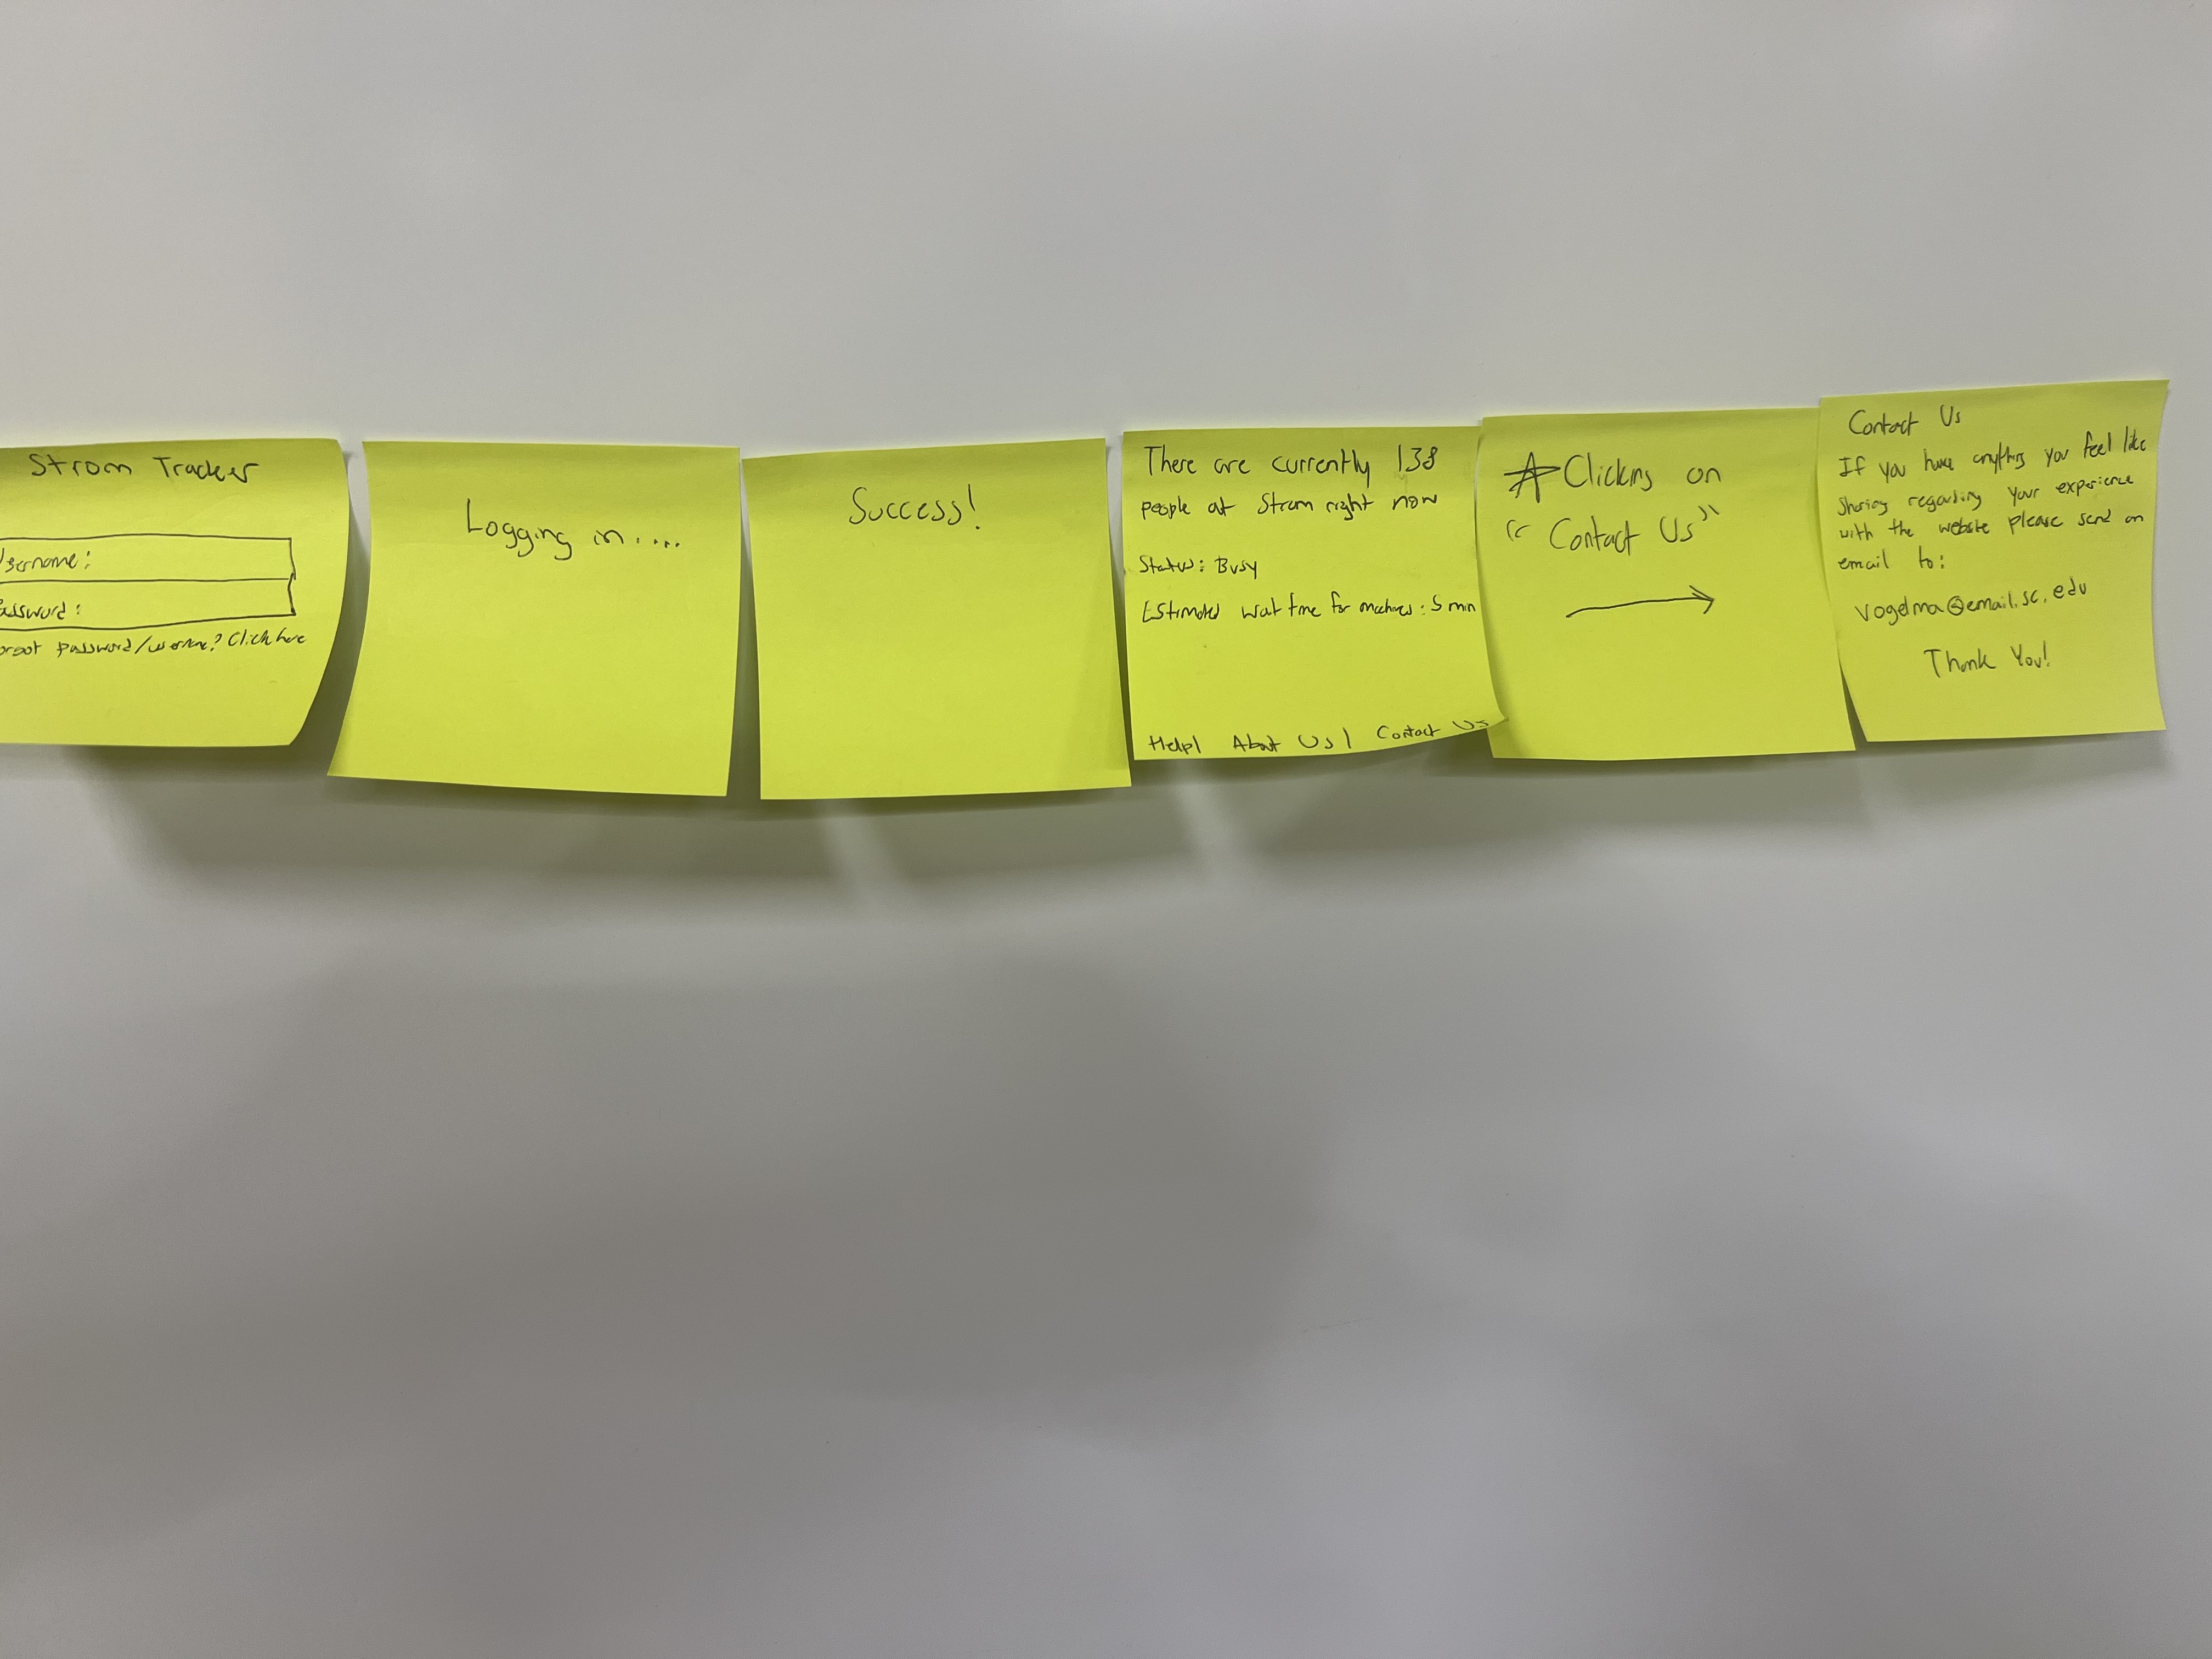 Strom Tracker
sername:
assword:
orgot password/username? Click here
Logging in....
Success!
There are currently 138
people at Strom right now
Status: Busy
Estimated wait time for machines: 5 min
Help| About Us| Contact Us
Clicking on
"Contact Us"
Contact Us
If you have anything you feel like
sharing regarding your experience
with the website please send an
email to:
vogelma@email.sc.edu
Thank You!